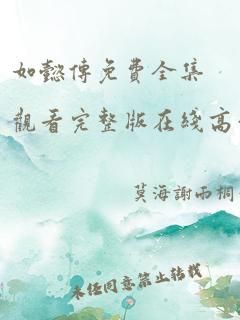 如懿傳免費全集
觀看完整版在綫高
莫海謝雨桐
未經同意禁止轉載